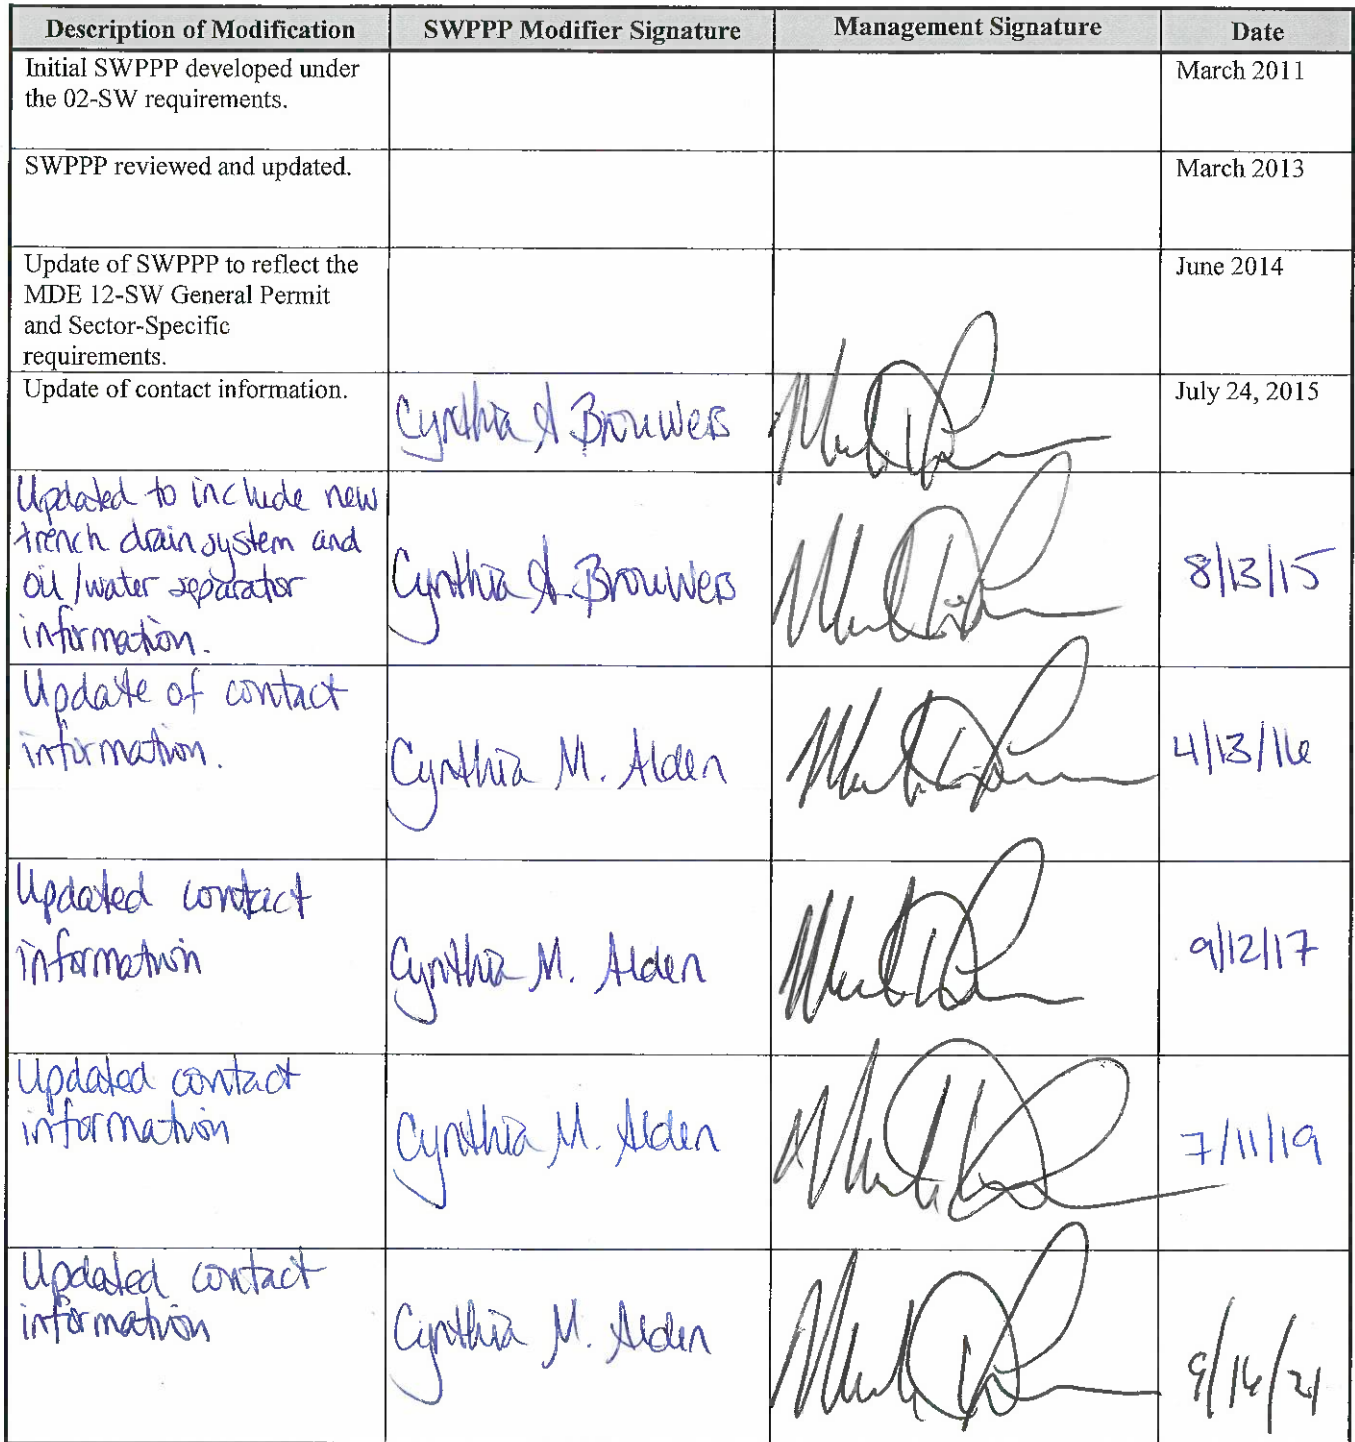 Description of Modification SWPPP Modifier Signature Management Signature Date
Initial SWPPP developed under March 2011
the 02-SW requirements.
SWPPP reviewed and updated. March 2013
Update of SWPPP to reflect the June 2014
MDE 12-SW General Permit
and Sector-Specific
requirements.
Update of contact information. Cynthia A Brouwers July 24, 2015
Updated to include new
trench drain system and
oil/water separator Cynthia A. Brouwers 8/13/15
information.
Update of contact
information. Cynthia M. Alden 4/13/16
Updated contact
information Cynthia M. Alden 9/12/17
Updated contact
information Cynthia M. Alden 7/11/19
Updated contact
information Cynthia M. Alden 9/16/21